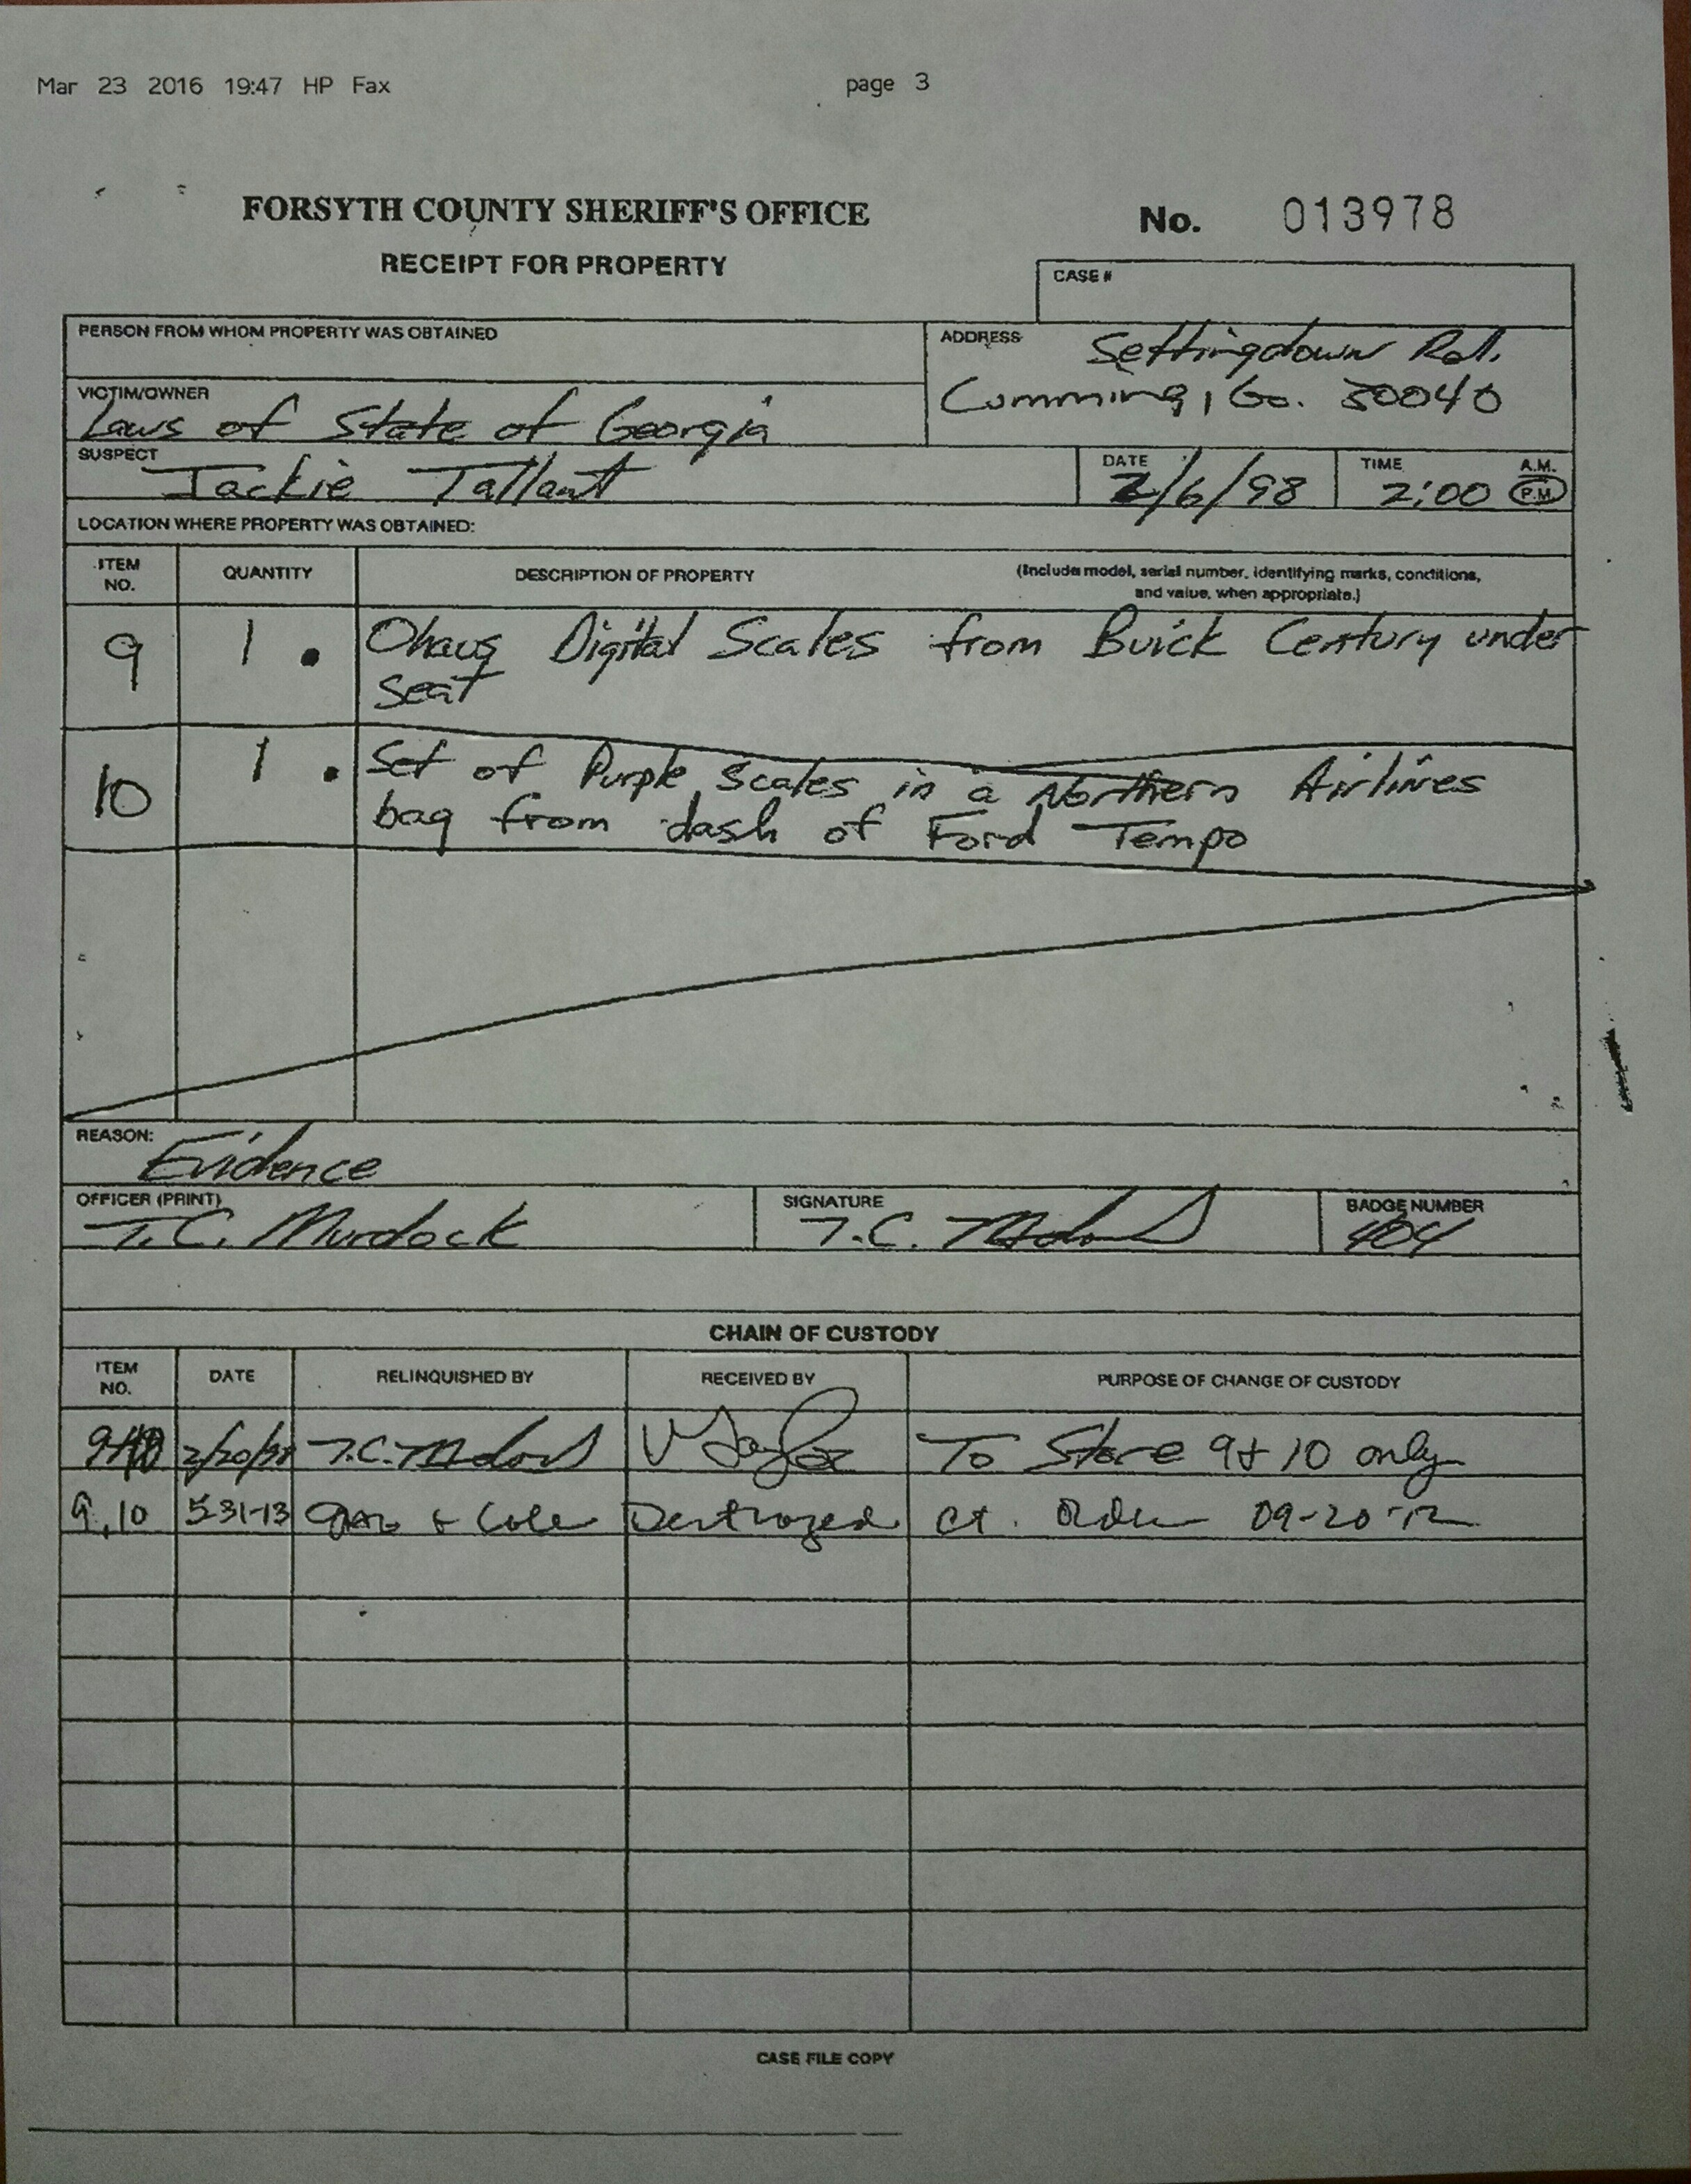 Mar 23 2016 19:47 HP Fax page 3
FORSYTH COUNTY SHERIFF'S OFFICE
No. 013978
RECEIPT FOR PROPERTY
CASE #
PERSON FROM WHOM PROPERTY WAS OBTAINED
ADDRESS Settingdown Rd.
Cumming, Ga. 30040
VICTIM/OWNER
Laws of State of Georgia
SUSPECT
Jackie Tallant
DATE
2/6/98
TIME
2:00
A.M.
P.M.
LOCATION WHERE PROPERTY WAS OBTAINED:
ITEM NO.
QUANTITY
DESCRIPTION OF PROPERTY
(Include model, serial number, identifying marks, conditions,
and value, when appropriate.)
9 1 Ohaus Digital Scales from Buick Century under
seat
10 1 Set of Purple Scales in a Northern Airlines
bag from dash of Ford Tempo
REASON:
Evidence
OFFICER (PRINT)
T.C. Murdock
SIGNATURE
T.C.
BADGE NUMBER
404
CHAIN OF CUSTODY
ITEM NO.
DATE
RELINQUISHED BY
RECEIVED BY
PURPOSE OF CHANGE OF CUSTODY
2/20/98 T.C. To Store 9 & 10 only
9,10 5-31-13 & Cole Destroyed Ct. Order 09-20-12
CASE FILE COPY